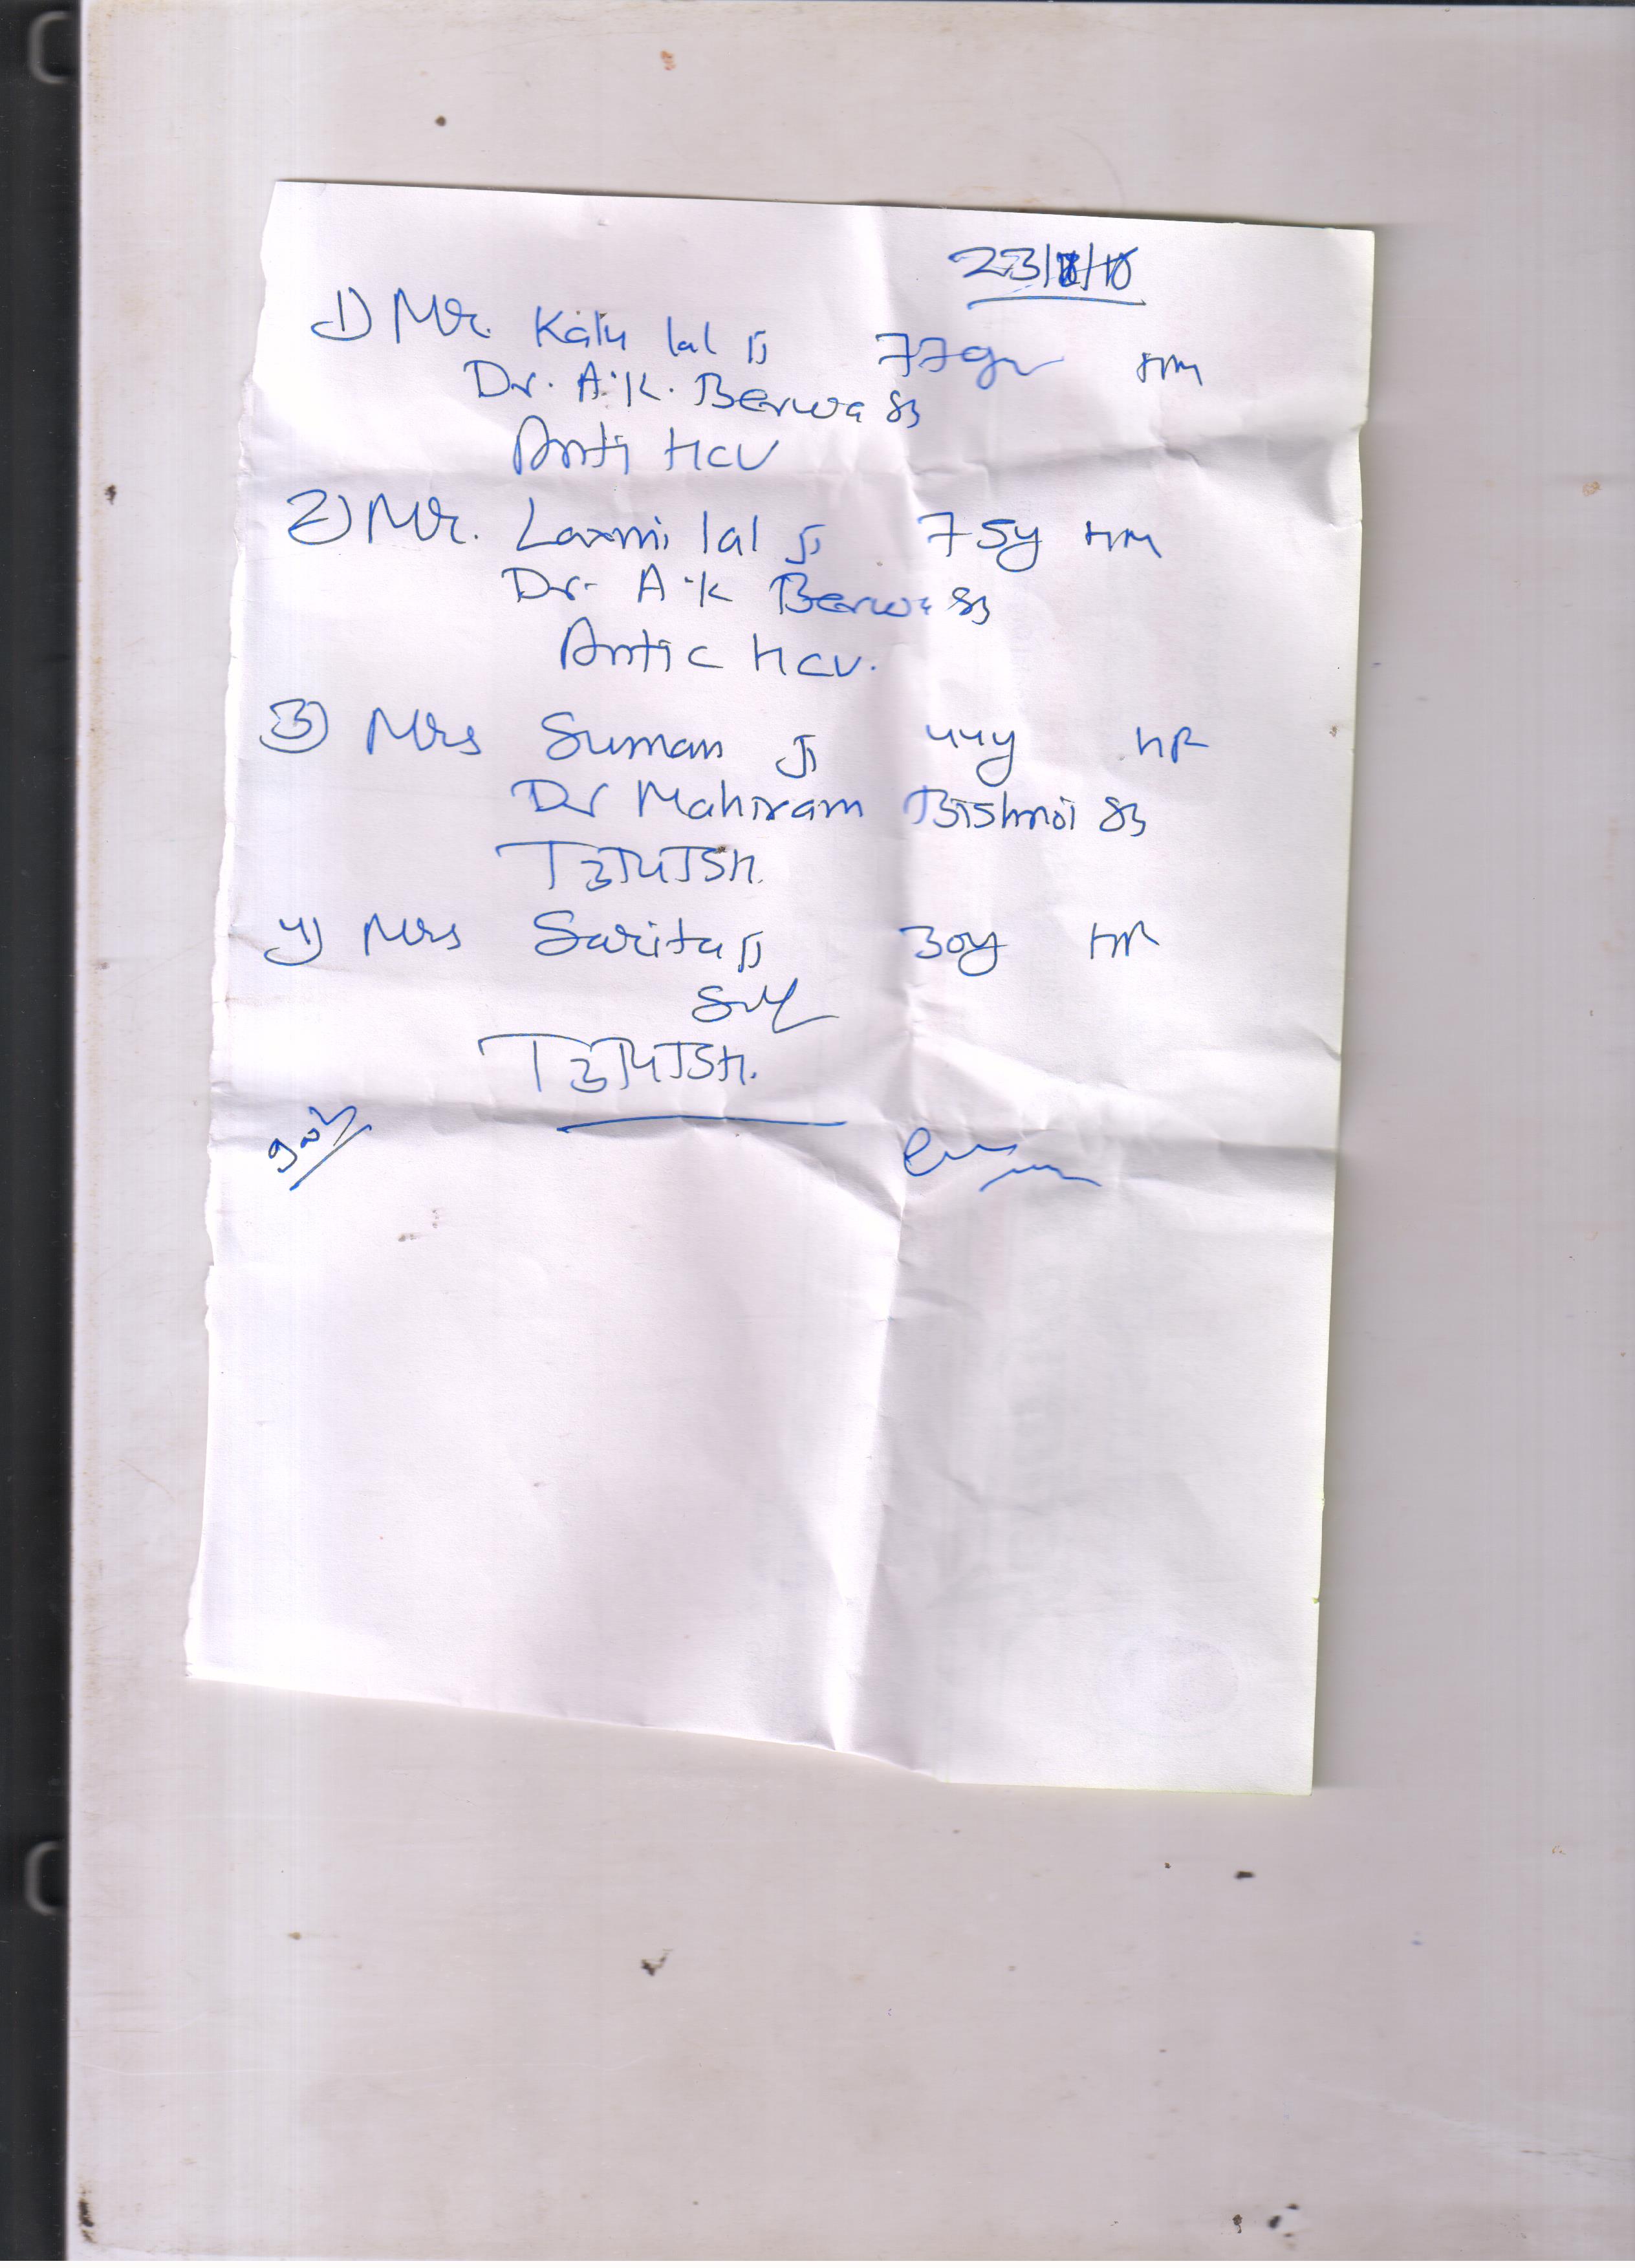 23/8/10
1) Mr. Kalu lal Ji 77yr HM
Dr. A.K. Berwa SB
Anti HCV
2) Mr. Laxmi lal Ji 75y HM
Dr. A.K Berwa SB
Anti C HCV.
3) Mrs Suman Ji 44y HF
Dr Mahiram Bishnoi SB
T3T4TSH.
4) Mrs Sarita Ji 30y HF
Self
T3T4TSH.